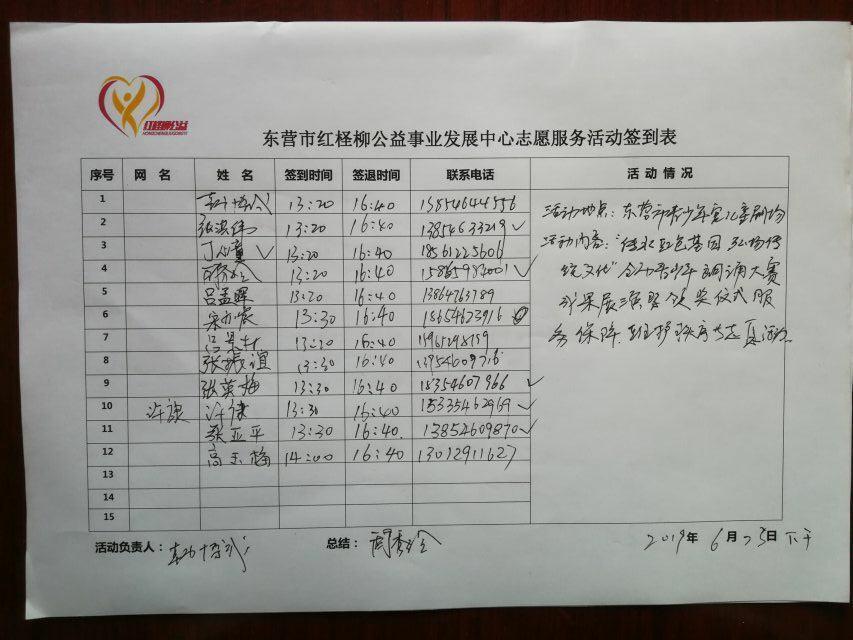 红柽柳公益
东营市红柽柳公益事业发展中心志愿服务活动签到表
序号 网 名 姓 名 签到时间 签退时间 联系电话 活 动 情 况
1 13:20 16:40 13854644556
2 张洪伟 13:20 16:40 13854633219 ✓
3 丁心童 ✓ 13:20 16:40 18561225606
4 13:20 16:40 15865984001 ✓
5 吕孟晖 13:20 16:40 13864763789
6 13:30 16:40 18654623916
7 13:20 16:40
8 张振谊 13:30 16:40
9 张英梅 13:30 16:40 18354607966 ✓
10 许康 许康 13:30 16:40 15335462969 ✓
11 蔡亚平 13:30 16:40 13854609870 ✓
12 高玉梅 14:00 16:40 13012911627
13
14
15
活动地点：东营市青少年宫儿童剧场
活动内容：“传承红色基因 弘扬传
统文化” 朗诵大赛
成果展演暨颁奖仪式服
务保障、维护秩序志愿活动
活动负责人： 总结： 周秀玲 2019年 6月23日 下午